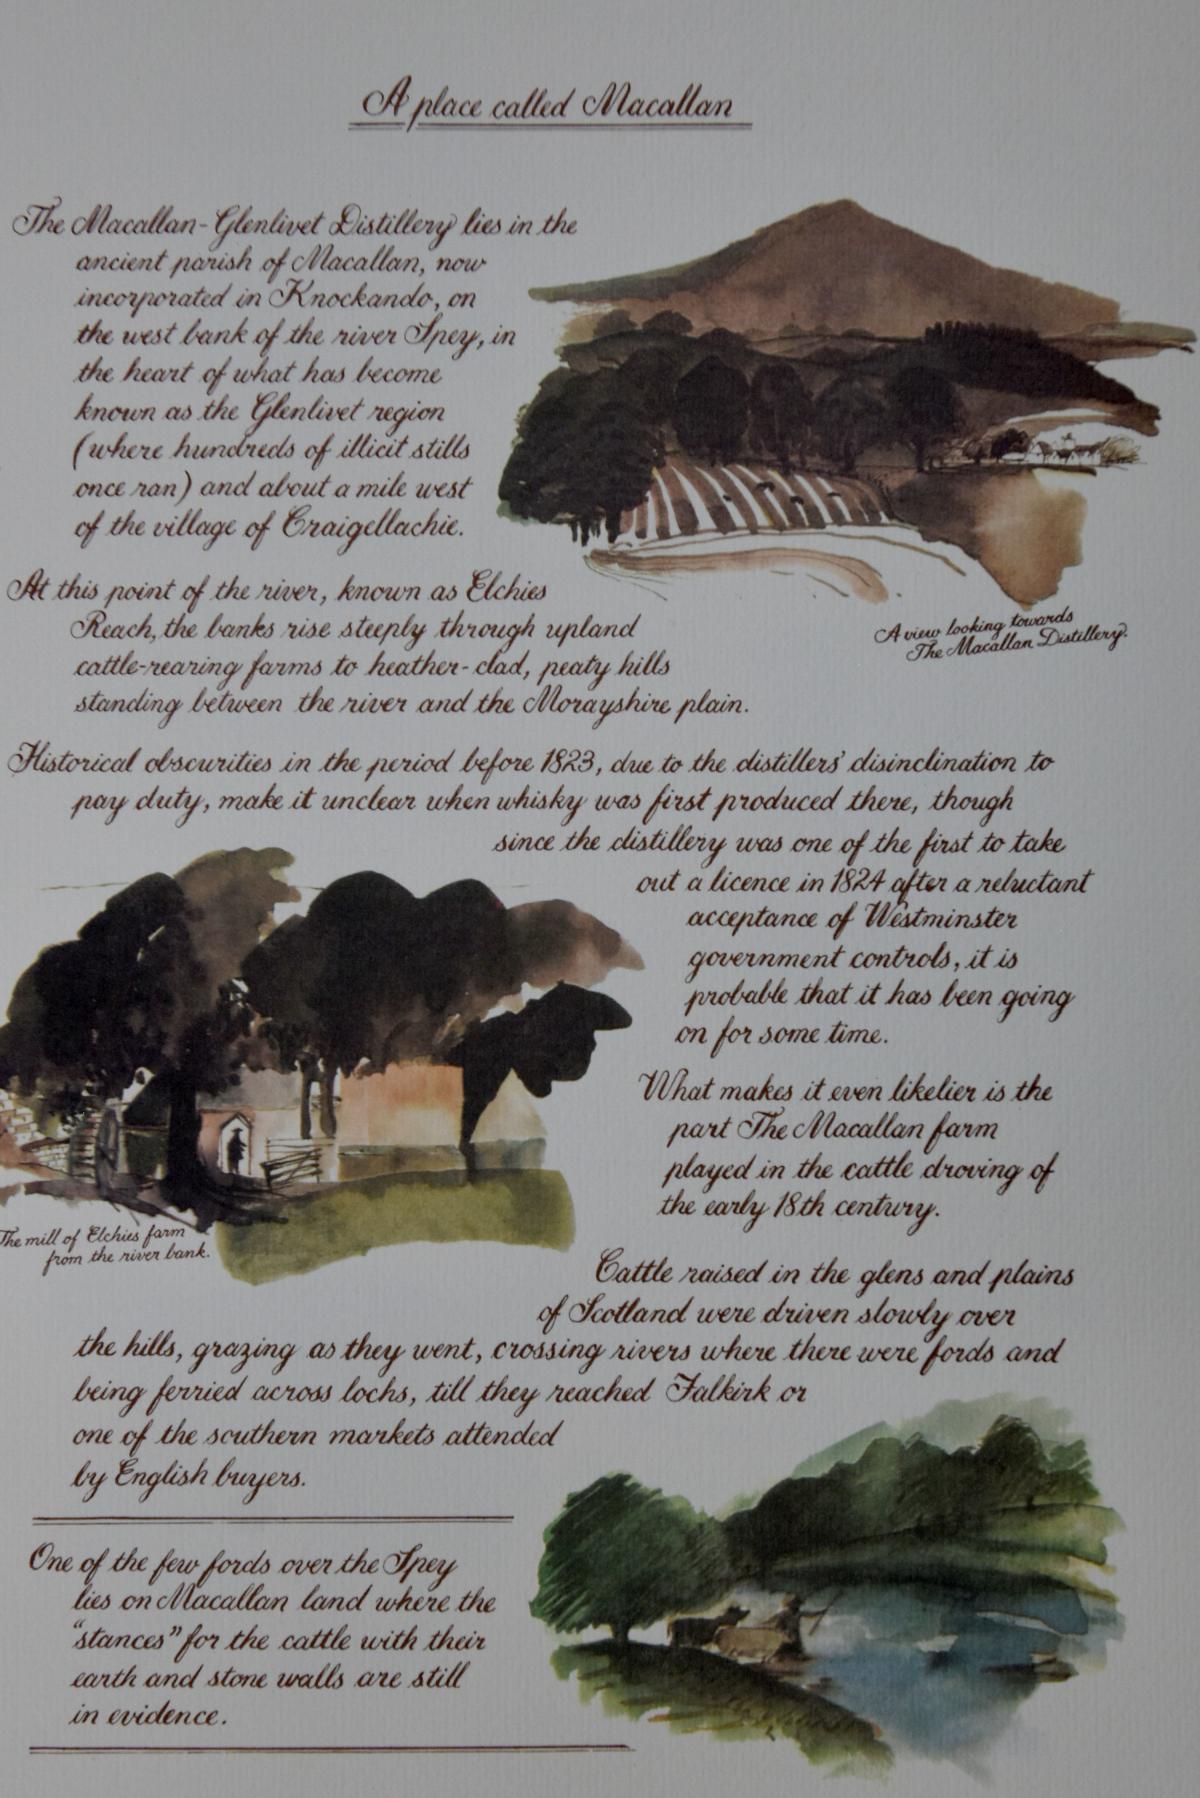 A place called Macallan
The Macallan-Glenlivet Distillery lies in the
ancient parish of Macallan, now
incorporated in Knockando, on
the west bank of the river Spey, in
the heart of what has become
known as the Glenlivet region
(where hundreds of illicit stills
once ran) and about a mile west
of the village of Craigellachie.
A view looking towards
The Macallan Distillery.
At this point of the river, known as Elchies
Reach, the banks rise steeply through upland
cattle-rearing farms to heather-clad, peaty hills
standing between the river and the Morayshire plain.
Historical obscurities in the period before 1823, due to the distillers' disinclination to
pay duty, make it unclear when whisky was first produced there, though
since the distillery was one of the first to take
out a licence in 1824 after a reluctant
acceptance of Westminster
government controls, it is
probable that it has been going
on for some time.
What makes it even likelier is the
part The Macallan farm
played in the cattle droving of
the early 18th century.
The mill of Elchies farm
from the river bank.
Cattle raised in the glens and plains
of Scotland were driven slowly over
the hills, grazing as they went, crossing rivers where there were fords and
being ferried across lochs, till they reached Falkirk or
one of the southern markets attended
by English buyers.
One of the few fords over the Spey
lies on Macallan land where the
"stances" for the cattle with their
earth and stone walls are still
in evidence.